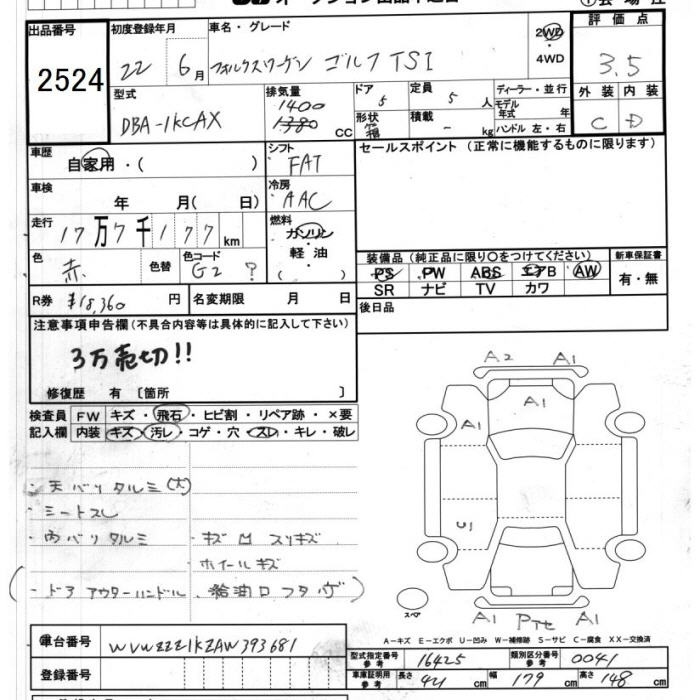 出品番号
2524
初度登録年月
22 6月
車名・グレード
フォルクスワーゲン ゴルフTSI
2WD
・
4WD
評価点
3.5
外装 内装
C D
型式
DBA-1KCAX
排気量
1400
1380 CC
ドア
5
形状
箱
定員
5 人
積載
- kg
ディーラー・並行
モデル
年式 年
ハンドル 左・右
車歴
自家用・( )
シフト
FAT
セールスポイント (正常に機能するものに限ります)
車検
年 月( 日)
冷房
AAC
走行
17万7千177km
燃料
ガソリン
・
軽油
( )
色
赤
色替
色コード
G2 ?
装備品 (純正品に限り○をつけてください)
PS PW ABS エアB AW
SR ナビ TV カワ
新車保証書
有・無
R券 ¥18,360 円
名変期限 月 日
後日品
注意事項申告欄(不具合内容等は具体的に記入して下さい)
3万売切!!
修復歴 有 〔箇所 〕
検査員
記入欄
FW キズ・飛石・ヒビ割・リペア跡・×要
内装 キズ・汚レ・コゲ・穴・スレ・キレ・破レ
・天バリタルミ(大)
・ミートスレ
・内バリタルミ
・キズ凹スリキズ
ホイールキズ
(・ドアアウターハンドル、給油口フタ
A2 A1
A1
A1
U1
A1 Pﾃｾ A1
スペア
A-キズ E-エクボ U-凹み W-補修跡 S-サビ C-腐食 XX-交換済
車台番号
WVWZZZ1KZAW393681
登録番号
型式指定番号
参考
16425
類別区分番号
参考
0041
車庫証明用
参考
長さ 421 cm
幅 179 cm
高さ 148 cm